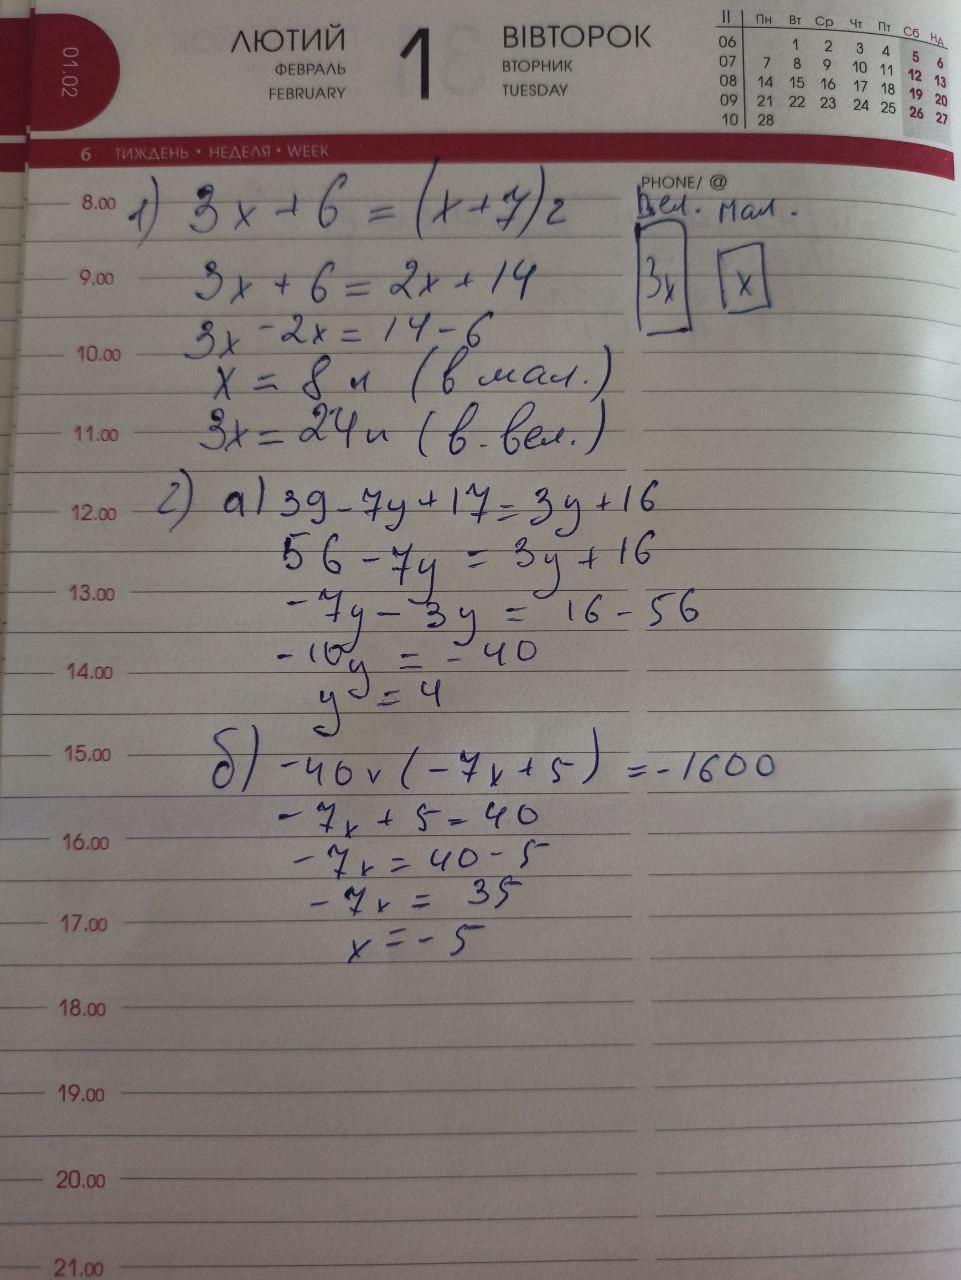 01.02
ЛЮТИЙ
ФЕВРАЛЬ
FEBRUARY
1
ВІВТОРОК
ВТОРНИК
TUESDAY
II Пн Вт Ср Чт Пт Сб Нд
06 1 2 3 4 5 6
07 7 8 9 10 11 12 13
08 14 15 16 17 18 19 20
09 21 22 23 24 25 26 27
10 28
6 ТИЖДЕНЬ • НЕДЕЛЯ • WEEK
PHONE/ @
8.00 1) 3x + 6 = (x+7)2
Вел. мал.
3x x
9.00 3x + 6 = 2x + 14
3x - 2x = 14 - 6
10.00
x = 8 л (в мал.)
11.00 3x = 24 л (в вел.)
2) а) 39 - 7y + 17 = 3y + 16
12.00
56 - 7y = 3y + 16
13.00
-7y - 3y = 16 - 56
-10y = -40
14.00
y = 4
15.00 б) -40 x (-7x + 5) = -1600
-7x + 5 = 40
16.00
-7x = 40 - 5
-7x = 35
17.00
x = -5
18.00
19.00
20.00
21.00